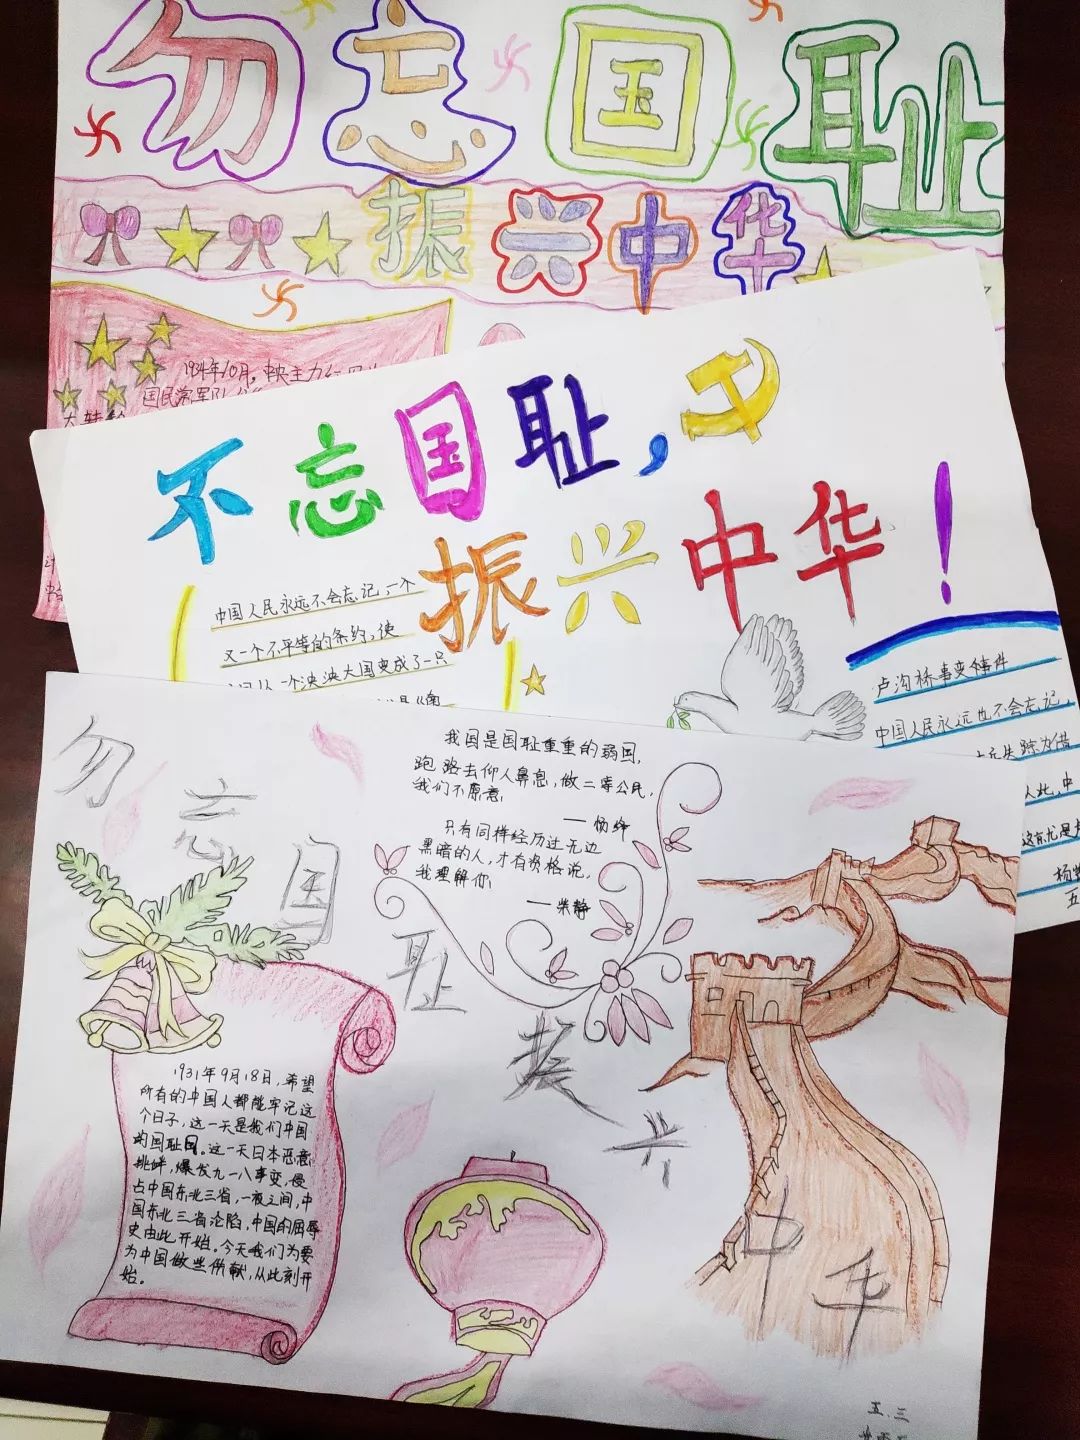 勿忘国耻
振兴中华
1934年10月，中央主力红
国民党军队
不忘国耻，
振兴中华！
中国人民永远不会忘记，一个
又一个不平等的条约，使
一个泱泱大国变成了一只
卢沟桥事变事件
中国人民永远也不会忘记，
失踪为借
此，中
五
勿忘国耻
振兴
中华
我国是国耻重重的弱国，
跑路去仰人鼻息，做二等公民，
我们不愿意，
——杨绛
只有同样经历过无边
黑暗的人，才有资格说，
我理解你！
——柴静
1931年9月18日，希望
所有的中国人都能牢记这
个日子，这一天是我们中国
的国耻日。这一天日本恶意
挑衅，爆发九一八事变，侵
占中国东北三省，一夜之间，中
国东北三省沦陷，中国的屈辱
史由此开始。今天我们为要
为中国做些供献，从此刻开
始。
五．三